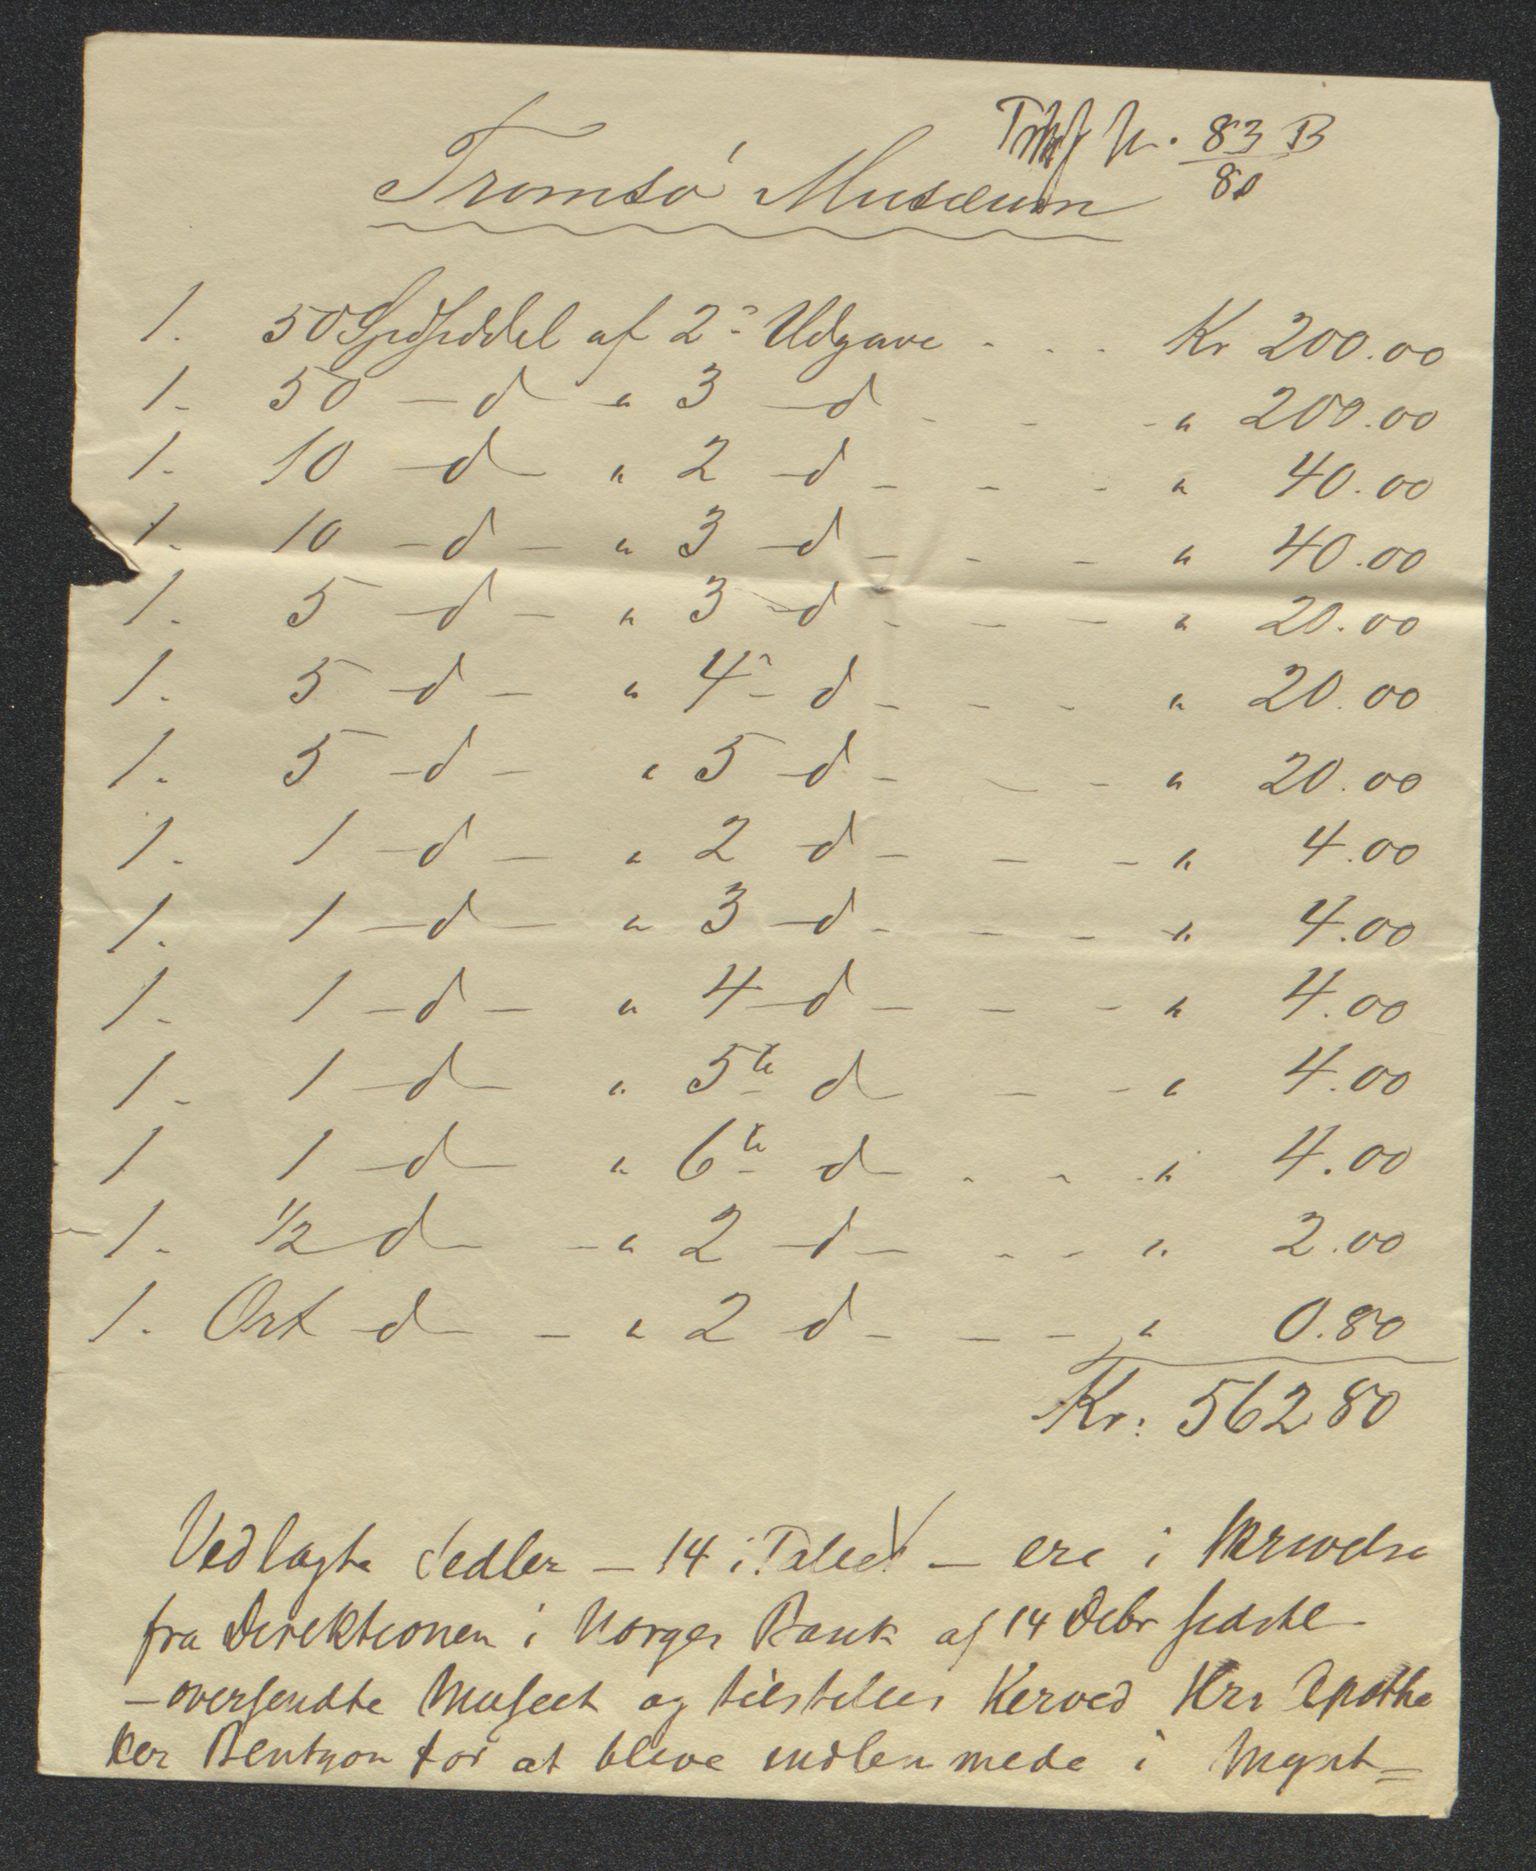 N. 83 B
80
Tromsø Musæum
1. 50 Spdseddel af 2n Udgave - . . Kr 200.00
1. 50 - d " 3 - d - - - " 200.00
1. 10 - d - " 2 - d - - - " 40.00
1. 10 - d - " 3 - d - - - " 40.00
1. 5 - d - " 3 - d - - - " 20.00
1. 5 - d - " 4n - d - - - " 20.00
1. 5 - d - " 5 - d - - - " 20.00
1. 1 - d - " 2 d - - - " 4.00
1. 1 - d - " 3 - d - - - " 4.00
1. 1 - d - " 4 - d - - - " 4.00
1. 1 - d - " 5te d - - - " 4.00
1 1 - d - " 6te d - . - . " 4.00
1. 1/2 d - - " 2 - d - - - " 2.00
1. Ort - d - - " 2 d - - - " 0.80
Kr: 562.80
Vedlagte Sedler - 14 i Tallet - ere i Skrivelse
fra Direktionen i Norges Bank af 14 Debr sidstl.
- oversendte Museet og tilstilles herved Hrr Apothe
ker Bentzon for at blive indlemmede i Mynt=